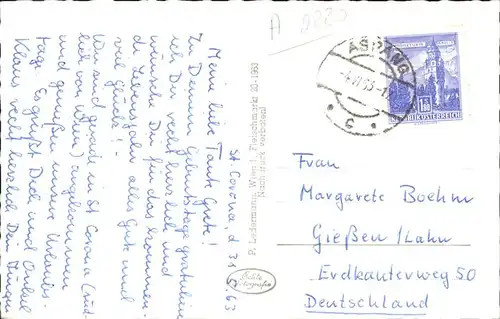 A 9225
St. Corona, d. 31.5.63
Meine liebe Tante Grete!
Zu Deinem Geburtstage gratuliere
ich Dir recht herzlich und
wünsche Dir für das kommende
Lebensjahr alles Gute und
viel Glück! -
Wir sind gerade in St. Corona (süd-
lich von Wien) angekommen
und genießen unsere Urlaubs-
tage. Es grüßt Dich und Onkel
Klaus recht herzlich Dein Jürgen
P. Ledermann, Wien I., Fleischmarkt 20 - 1963
Nachdruck verboten!
Echte
Fotografie
ASPANG
C
1.80
REPUBLIK ÖSTERREICH
Frau
Margarete Boehm
Gießen/Lahn
Erdkauterweg 50
Deutschland